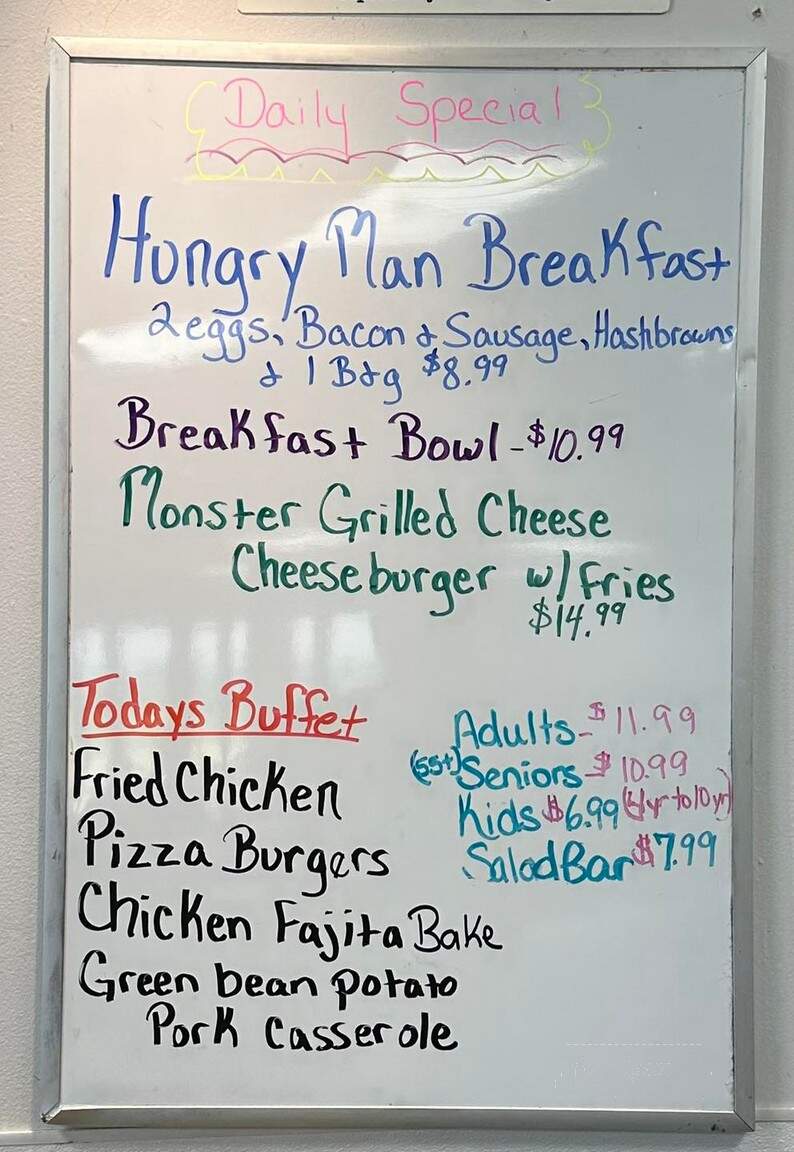 Daily Special
Hungry Man Breakfast
2 eggs, Bacon & Sausage, Hashbrowns
& 1 B&g $8.99
Breakfast Bowl - $10.99
Monster Grilled Cheese
Cheeseburger w/ Fries
$14.99
Todays Buffet
Fried Chicken
Pizza Burgers
Chicken Fajita Bake
Green bean potato
Pork Casserole
Adults - $11.99
(55+) Seniors - $10.99
Kids $6.99 (4yr to 10yr)
Salad Bar $7.99